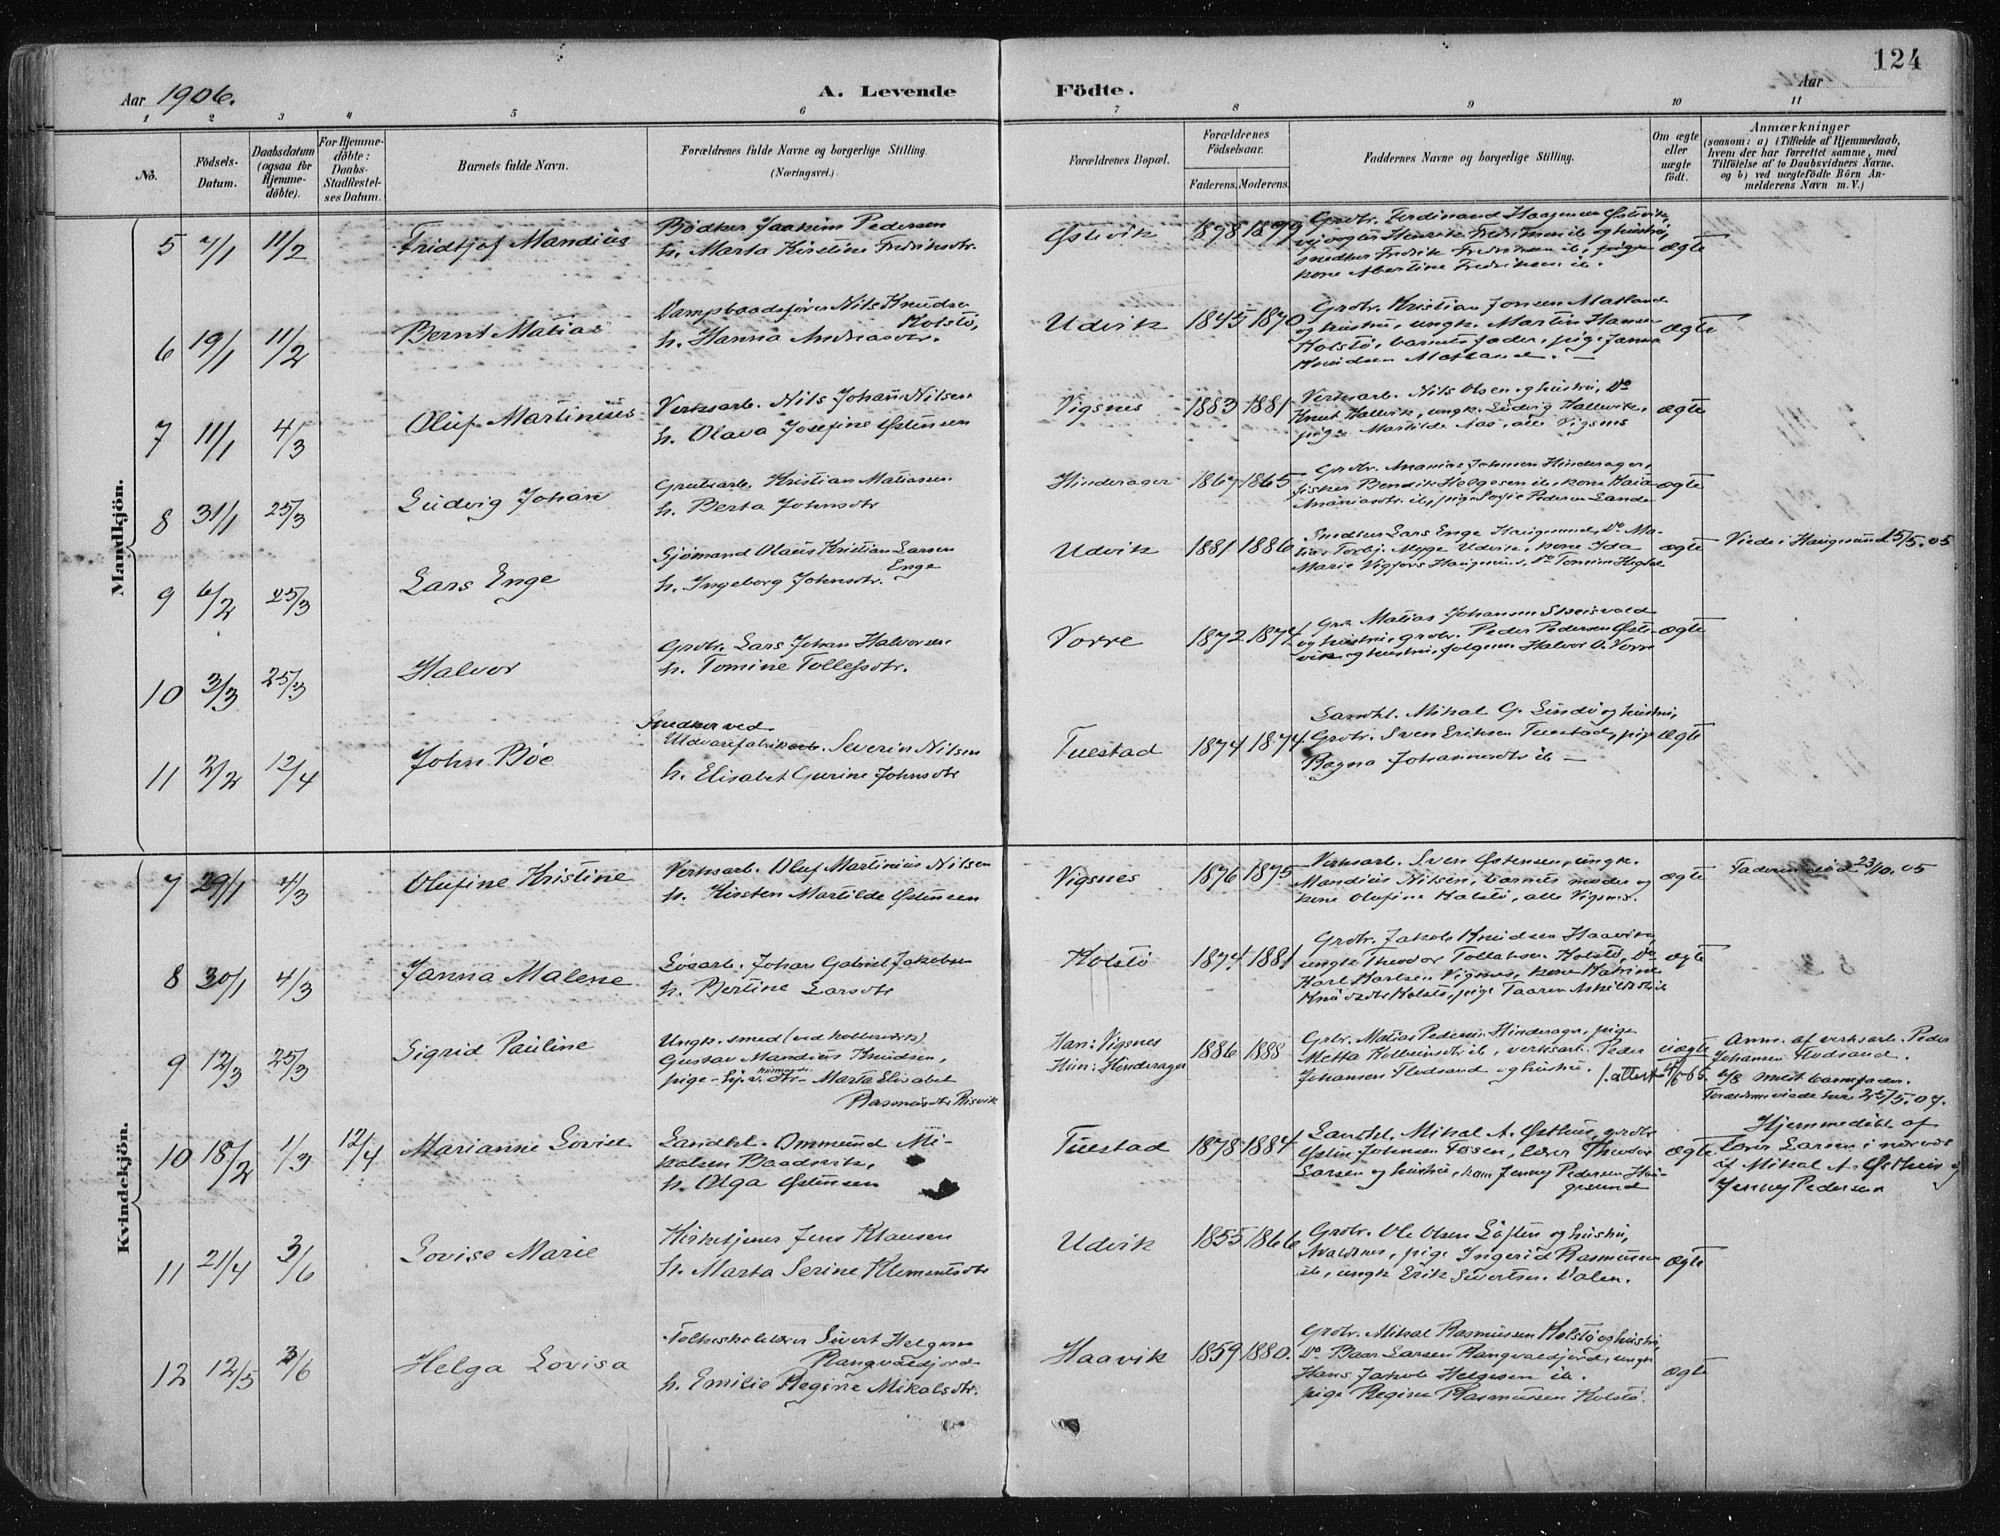 124
Aar 1906.
A. Levende
Födte.
Aar
1 2 3 4 5 6 7 8 9 10 11
No.
Födsels-
Datum.
Daabsdatum
(ogsaa for
Hjemme-
döbte).
For Hjemme-
döbte:
Daabs-
Stadfæstel-
ses Datum.
Barnets fulde Navn.
Forældrenes fulde Navne og borgerlige Stilling.
(Næringsvei.)
Forældrenes Bopæl.
Forældrenes
Födselsaar.
Faderens. Moderens.
Faddernes Navne og borgerlige Stilling.
Om ægte
eller
uægte
födt.
Anmærkninger
(saasom: a) i Tilfælde af Hjemmedaab,
hvem der har forrettet samme, med
Tilföielse af to Daabsvidners Navne.
og b) ved uægtefödte Börn An-
melderens Navn m. V.)
Mandkjön.
5 7/1 11/2 Fridtjof Mandius
Bödker Joakim Pedersen
h. Marta Kirstine Fredriksdtr.
Östevik
Grdbr. Ferdinand Haagensen Östevik,
smedker Fredrik Fredriksen ib.
kone Abertine Fredriksen ib.
ægte
6 19/1 11/2 Bernt Matias
Dampbaadsförer Nils Knudsen
Kolstö,
h. Hanna Andreasdtr.
Udvik 1845 1870
Grdbr. Kristian Jonsen Matland
og hustru, ungk. Martin Hansen
Kolstö, barnets fader, pige Janna
Knudsen Matland. —
ægte
7 11/1 4/3 Oluf Martinius
Verksarb. Nils Johan Nilsen
h. Olava Josefine Östensen
Vigsnes 1883 1881
Verksarb. Nils Olsen og hustru, Do
Knut Hallvik, ungk. Ludvig Hallvik,
pige Martilde Aas, alle Vigsnes
ægte
8 31/1 25/3 Ludvig Johan
Grubearb. Kristian Matiassen
h. Berta Johnsdtr
Hinderager 1867 1865
Grdbr. Ananias Johnsen Hinderager,
fisker Bendik Helgesen ib, kone
Ananiasdtr ib, pige Sofie Pedersen Sande
ægte
9 6/2 25/3 Lars Enge
Sjömand Olaus Kristian Larsen
Enge
h. Ingeborg Johnsdtr.
Udvik 1881 1886
Smedker Lars Enge Haugesund, Do Ma-
tias Torbj. Myge Udvik, kone Ida
Marie Haugesund, Do
ægte
Viede i Haugesund 15/5.05
10 3/3 25/3 Halvor
Grdbr. Lars Johan Halvorsen
h. Tomine Tollefsdtr.
Vorre 1872 1874
Matias Johansen
og hustru, grdbr. Peder Pedersen Öste-
vik og hustru, Halvor O. Vorre
ægte
11 2/2 12/4 John Böe
Smedker ved
Uldvarefabrik Severin Nilsen
h. Elisabet Gurine Johnsdtr
Tuestad 1874 1874
Landhl. Mikal G. Lindö og hustru,
Grdbr. Sven Eriksen Tuestad, pige
Ragna Johannesdtr ib —
ægte
Kvindekjön.
7 29/1 4/3 Olufine Kristine
Verksarb. Oluf Martinius Nilsen
h. Kirsten Martilde Östensen
Vigsnes 1876 1875
Verksarb. Sven Östensen, ungk.
Mandius Nilsen, barnets moder og
kone Olufine Kalstö, alle Vigsnes.
ægte
Faderen död 23/10.05
8 30/1 4/3 Janna Malene
Löearb. Johan Gabriel Jakobsen
h. Bertine Larsdtr
Kolstö 1874 1881
Grdbr. Jakob Knudsen Haavik,
ungk Theodor Tollaksen Kolstö, Do
Karl Karlsen Vigsnes, kone Katrine
Knudsdtr Kolstö, pige Taaren Askildsdtr ib
ægte
9 12/3 25/3 Sigrid Pauline
Ungk. smed (ved kobberverk)
Gustav Mandius Knudsen,
pige Marta Elisabet
Rasmusdtr Risvik
Han: Vigsnes
Hun: Hinderager
1886 1888
Grbr. Matias Pedersen Hinderager, pige
Metta Kolbeinsdtr ib, verksarb. Peder
Johansen Stodsand og hustru.
uægte
Anm. af verksarb. Peder
Johansen Stodsand.
Forældrene viede 25/5.07.
10 18/2 1/3 12/4 Marianne Lovise
Landhl. Ommund Mi-
kalsen Baadsvik,
h. Olga Östensen
Tuestad 1878 1884
Landhl. Mikal A. Östhus, grdbr
Östen Johnsen Fosen, lærer Theodor
Larsen og hustru, Jenny Pedersen Hau-
gesund
ægte
Hjemmedöbt af
lærer Larsen i nærvær
af Mikal A. Östhus og
Jenny Pedersen
11 21/4 3/6 Lovise Marie
Kirketjener Jens Klausen
h. Marta Serine Klementsdtr
Udvik 1855 1866
Grdbr. Ole Olsen Löften og hustru,
Avaldsnes, pige Ingerid Rasmussen
ib, ungk Erik Sivertsen Valen.
ægte
12 12/5 3/6 Helga Lovisa
Folkeskolelærer Sivert Helgesen
Rangvaldjord
h. Emilie Regine Mikalsdtr.
Haavik 1859 1880.
Grdbr. Mikal Rasmussen Kolstö og hustru,
Do Baar Larsen Rangvaldjord, ungk
Hans Jakob Helgesen ib.
pige Regine Rasmussen Kolstö.
ægte